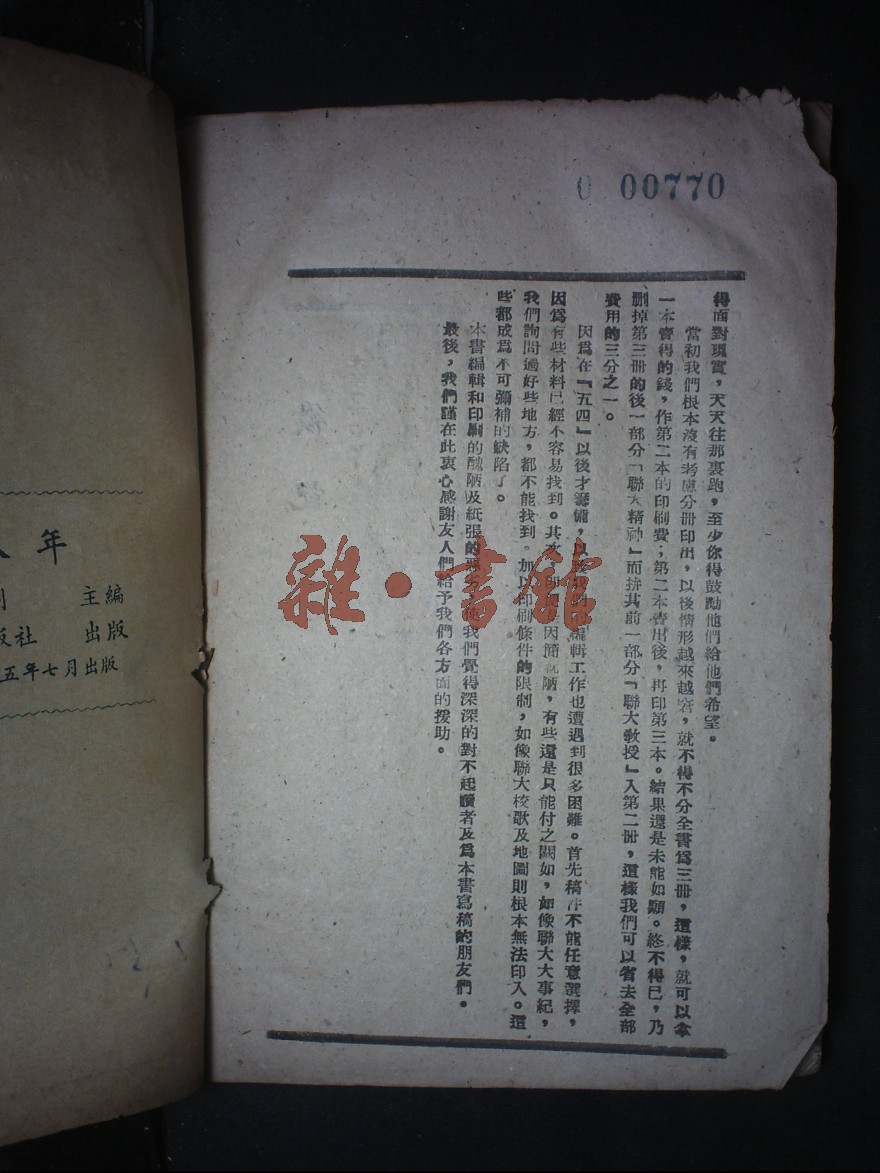 0 00770
得面對現實，天天往那裏跑，至少你得鼓勵他們給他們希望。
當初我們根本沒有考慮分冊印出，以後情形越來越窘，就不得不分全書爲三冊，這樣，就可以拿
一本賣得的錢，作第二本的印刷費；第二本賣出後，再印第三本。結果還是未能如願。終不得已，乃
删掉第三冊的後一部分「聯大精神」而拚其前一部分「聯大教授」入第二冊，這樣我們可以省去全部
費用的三分之一。
因爲在『五四』以後才籌備，以致我們的編輯工作也遭遇到很多困難。首先稿件不能任意選擇，
因爲有些材料已經不容易找到。其次，即使因簡就陋，有些還是只能付之闕如，如像聯大大事紀，
我們詢問過好些地方，都不能找到。加以印刷條件的限制，如像聯大校歌及地圖則根本無法印入。這
些都成爲不可彌補的缺陷了。
本書編輯和印刷的醜陋及紙張的使我們覺得深深的對不起讀者及爲本書寫稿的朋友們。
最後，我們謹在此衷心感謝友人們給予我們各方面的援助。
雜·書館
年
主編
版社 出版
五年七月出版